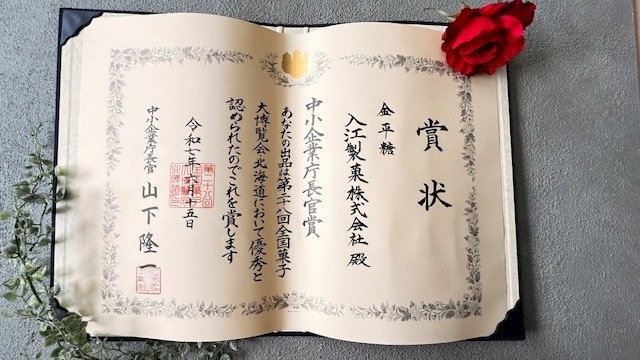 賞状
金平糖
入江製菓株式会社 殿
中小企業庁長官賞
あなたの出品は第二十八回全国菓子
大博覧会北海道において優秀と
認められたのでこれを賞します
令和七年六月十五日
中小企業庁長官 山下隆一